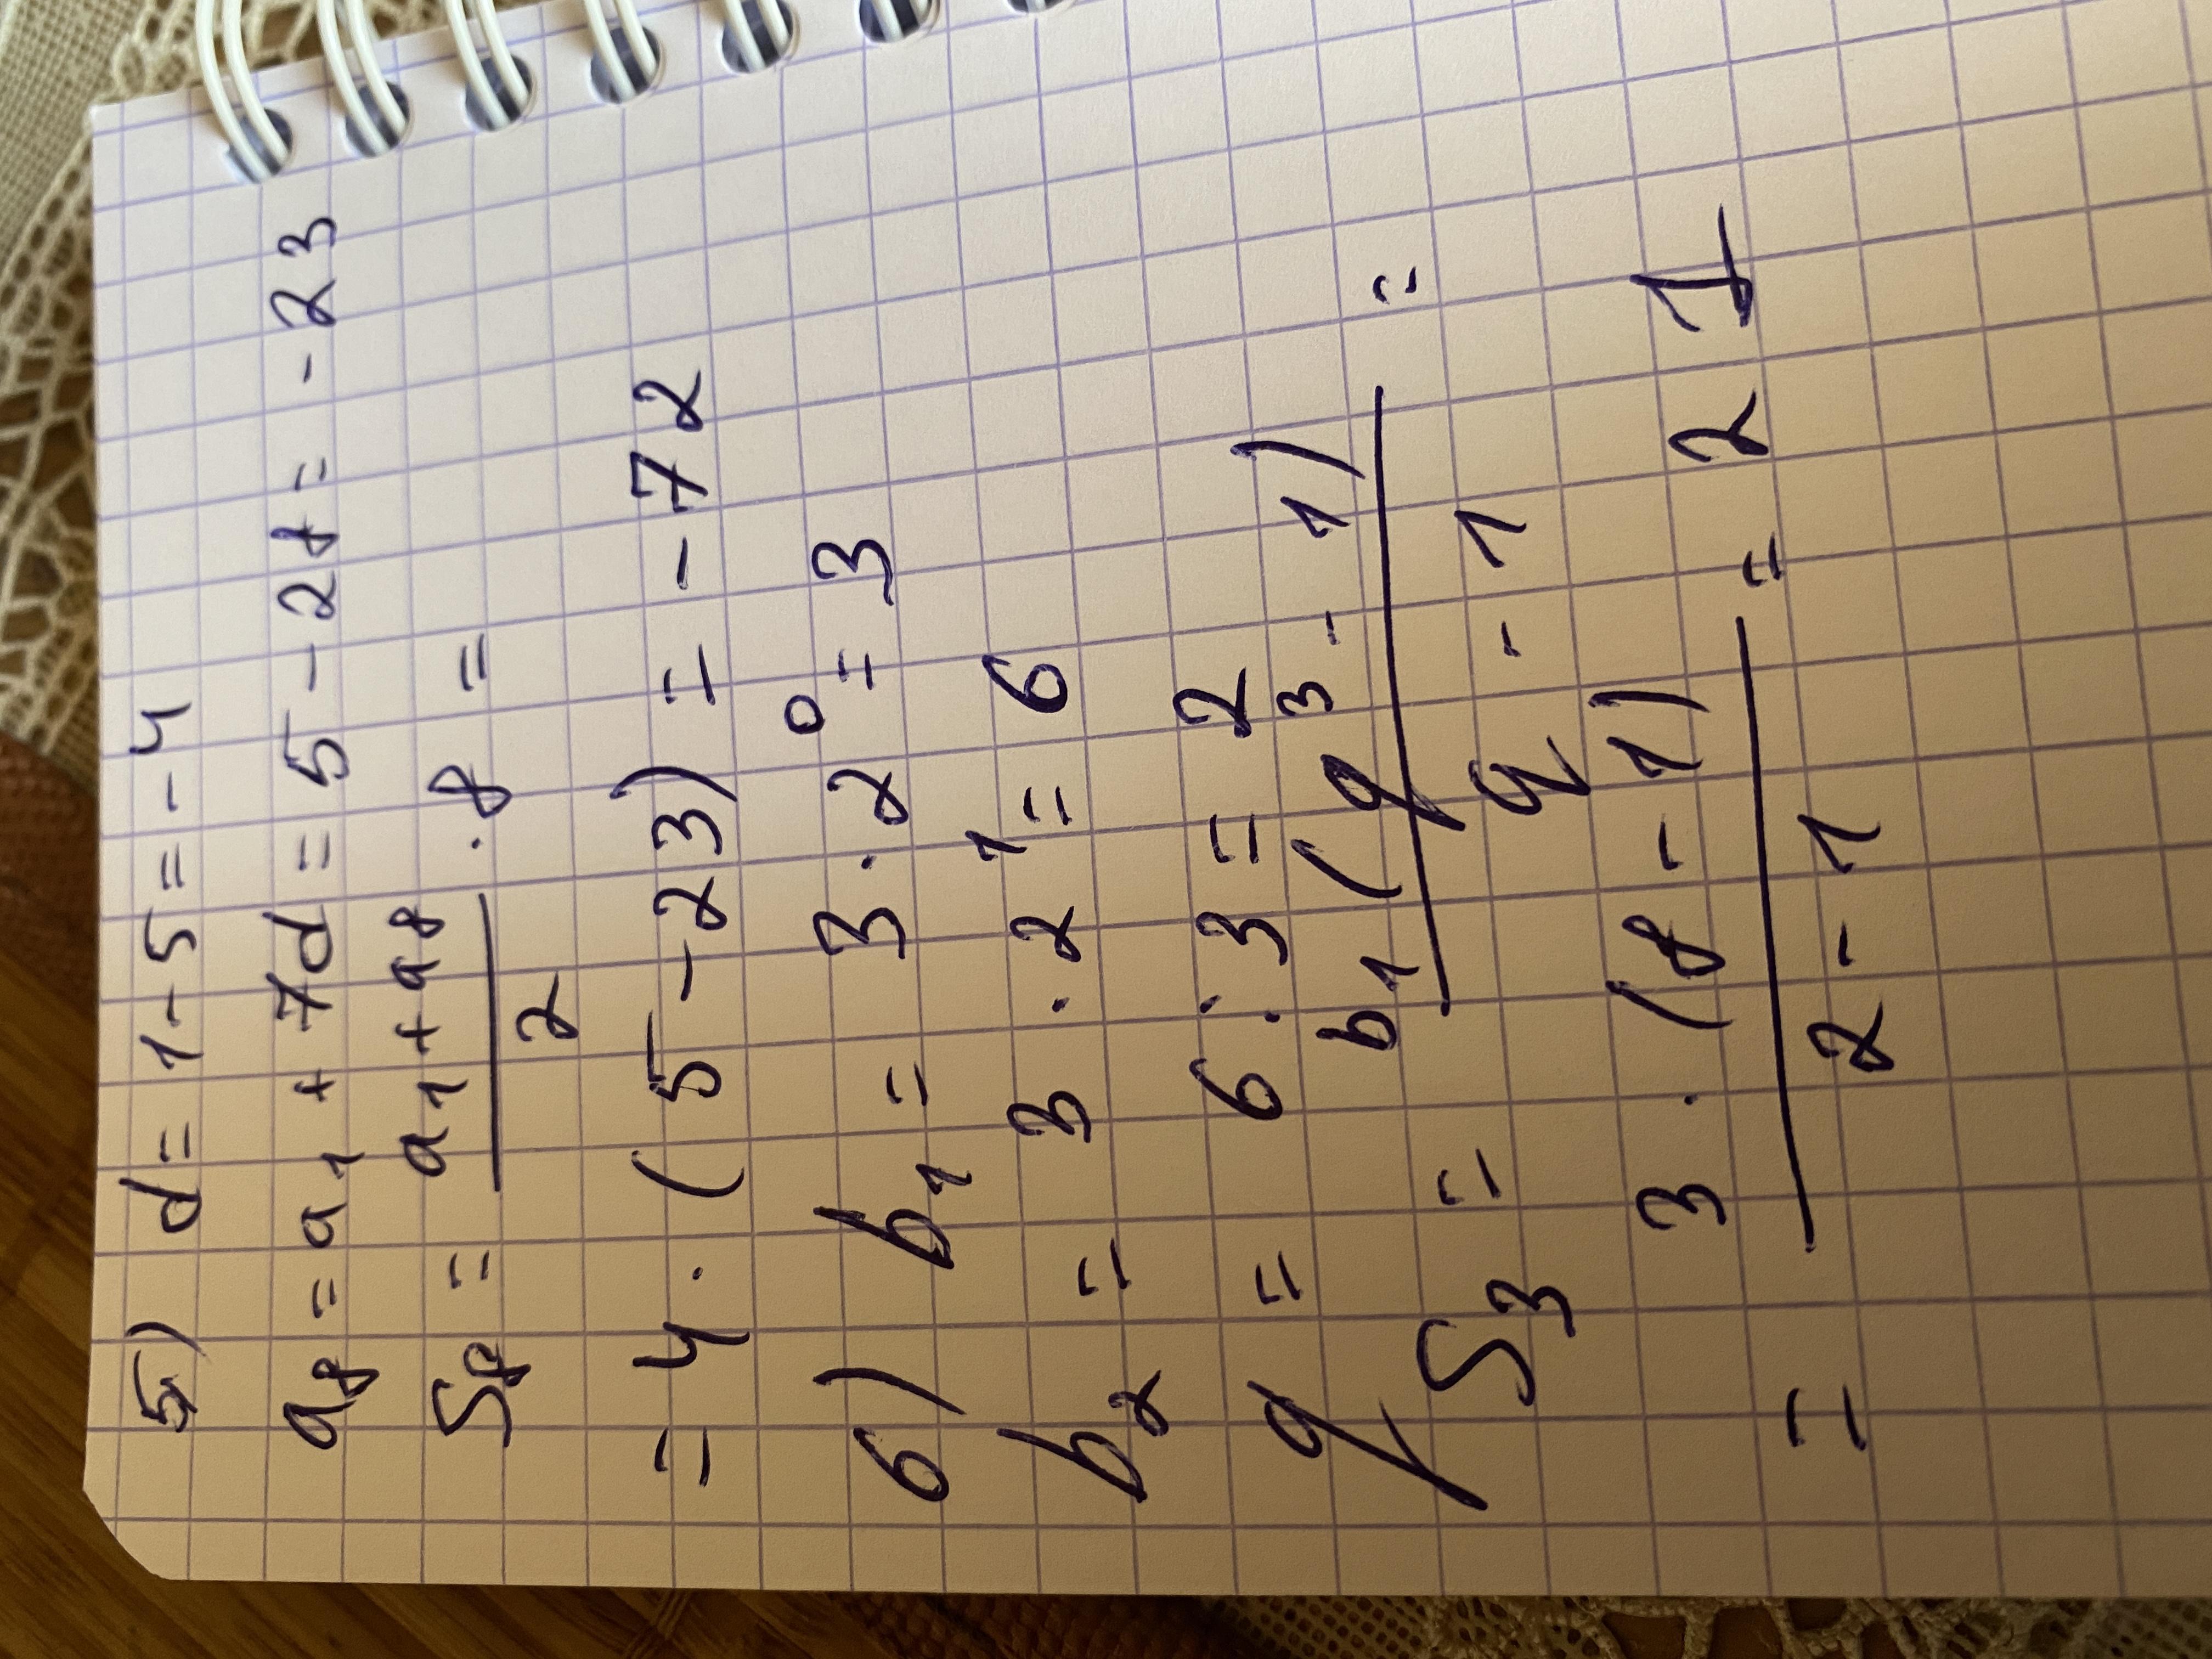 5) d = 1 - 5 = - 4
a₈ = a₁ + 7d = 5 - 28 = - 23
S₈ = (a₁ + a₈)/2 · 8 =
= 4 · (5 - 23) = - 72
6) b₁ = 3 · 2⁰ = 3
b₂ = 3 · 2¹ = 6
q = 6 : 3 = 2
S₃ = b₁(q³ - 1)/(q - 1) =
= 3 · (8 - 1)/(2 - 1) = 21